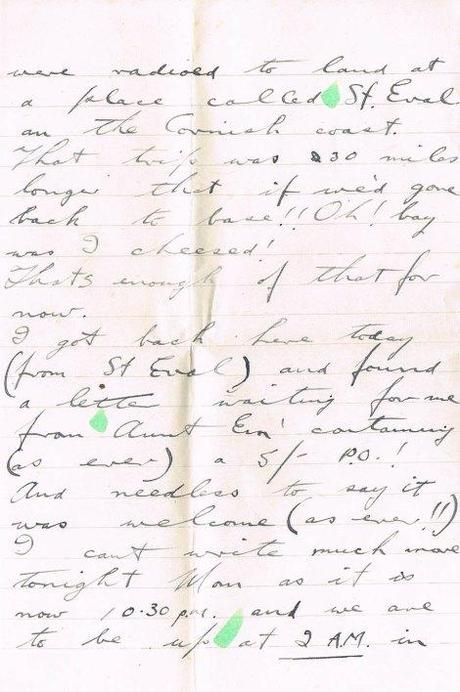 were radioed to land at
a place called St. Eval
on the Cornish coast.
That trip was 230 miles
longer that if we'd gone
back to base!! Oh! boy
was I cheesed!
Thats enough of that for
now.
I got back here today
(from St Eval) and found
a letter waiting for me
from Aunt Em' containing
(as ever) a 5/- P.O.!
And needless to say it
was welcome (as ever!!)
I can't write much more
tonight Mom as it is
now 10.30 p.m. and we are
to be up at 2 A.M. in